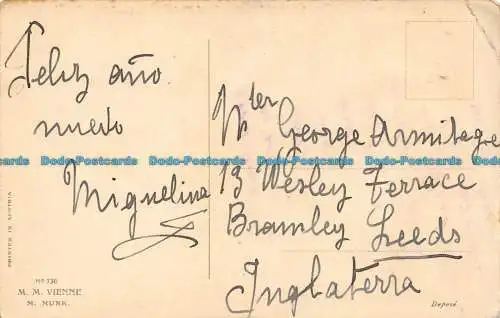 Feliz año
nuevo
Miguelina
Mter
George Armitage
13 Wesley Terrace
Bramley Leeds
Inglaterra
PRINTED IN AUSTRIA
No 736
M. M. VIENNE
M. MUNK.
Deposé
Dodo-Postcards Dodo-Postcards Dodo-Postcards Dodo-Postcards Dodo-Postcards Dodo-Postcards